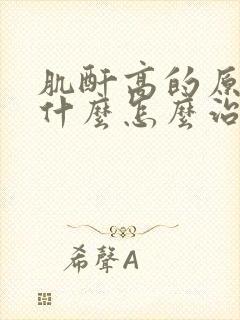 肌酐高的原
什麼怎麼治
希聲A